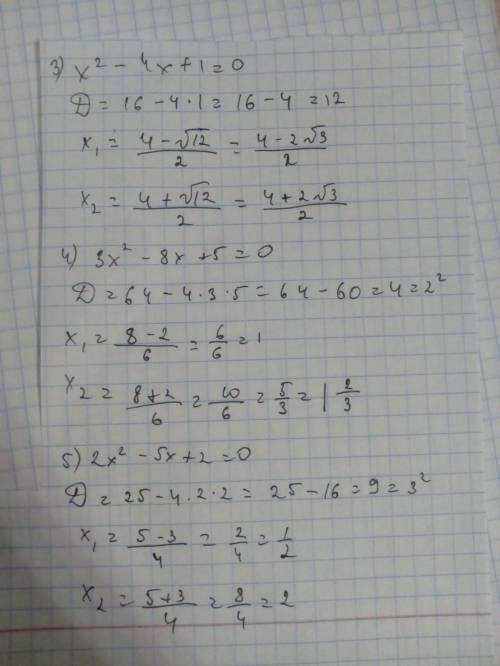 3) x² - 4x + 1 = 0
D = 16 - 4·1 = 16 - 4 = 12
x₁ = (4 - √12)/2 = (4 - 2√3)/2
x₂ = (4 + √12)/2 = (4 + 2√3)/2
4) 3x² - 8x + 5 = 0
D = 64 - 4·3·5 = 64 - 60 = 4 = 2²
x₁ = (8 - 2)/6 = 6/6 = 1
x₂ = (8 + 2)/6 = 10/6 = 5/3 = 1 2/3
5) 2x² - 5x + 2 = 0
D = 25 - 4·2·2 = 25 - 16 = 9 = 3²
x₁ = (5 - 3)/4 = 2/4 = 1/2
x₂ = (5 + 3)/4 = 8/4 = 2